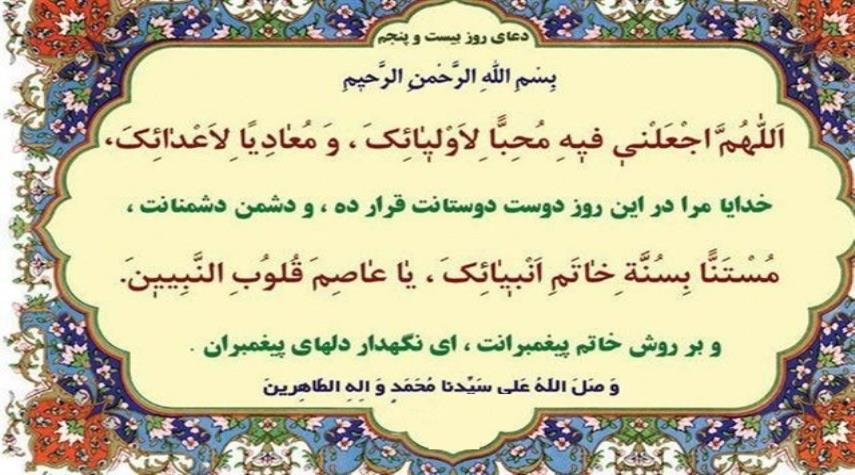 دعای روز بیست و پنجم
بِسْمِ اللهِ الرَّحْمنِ الرَّحیمِ
اَللّٰهُمَّ اجْعَلْنی فیهِ مُحِبًّا لِاَوْلیٰائِکَ ، وَ مُعٰادِیًا لِاَعْدٰائِکَ،
خدایا مرا در این روز دوست دوستانت قرار ده ، و دشمن دشمنانت ،
مُسْتَنًّا بِسُنَّةِ خٰاتَمِ اَنْبیٰائِکَ ، یٰا عٰاصِمَ قُلوُبِ النَّبِیینَ.
و بر روش خاتم پیغمبرانت ، ای نگهدار دلهای پیغمبران .
وَ صَلَ اللهُ عَلی سَیِّدنا مُحَمَدٍ وَ الِهِ الطّاهِرینَ